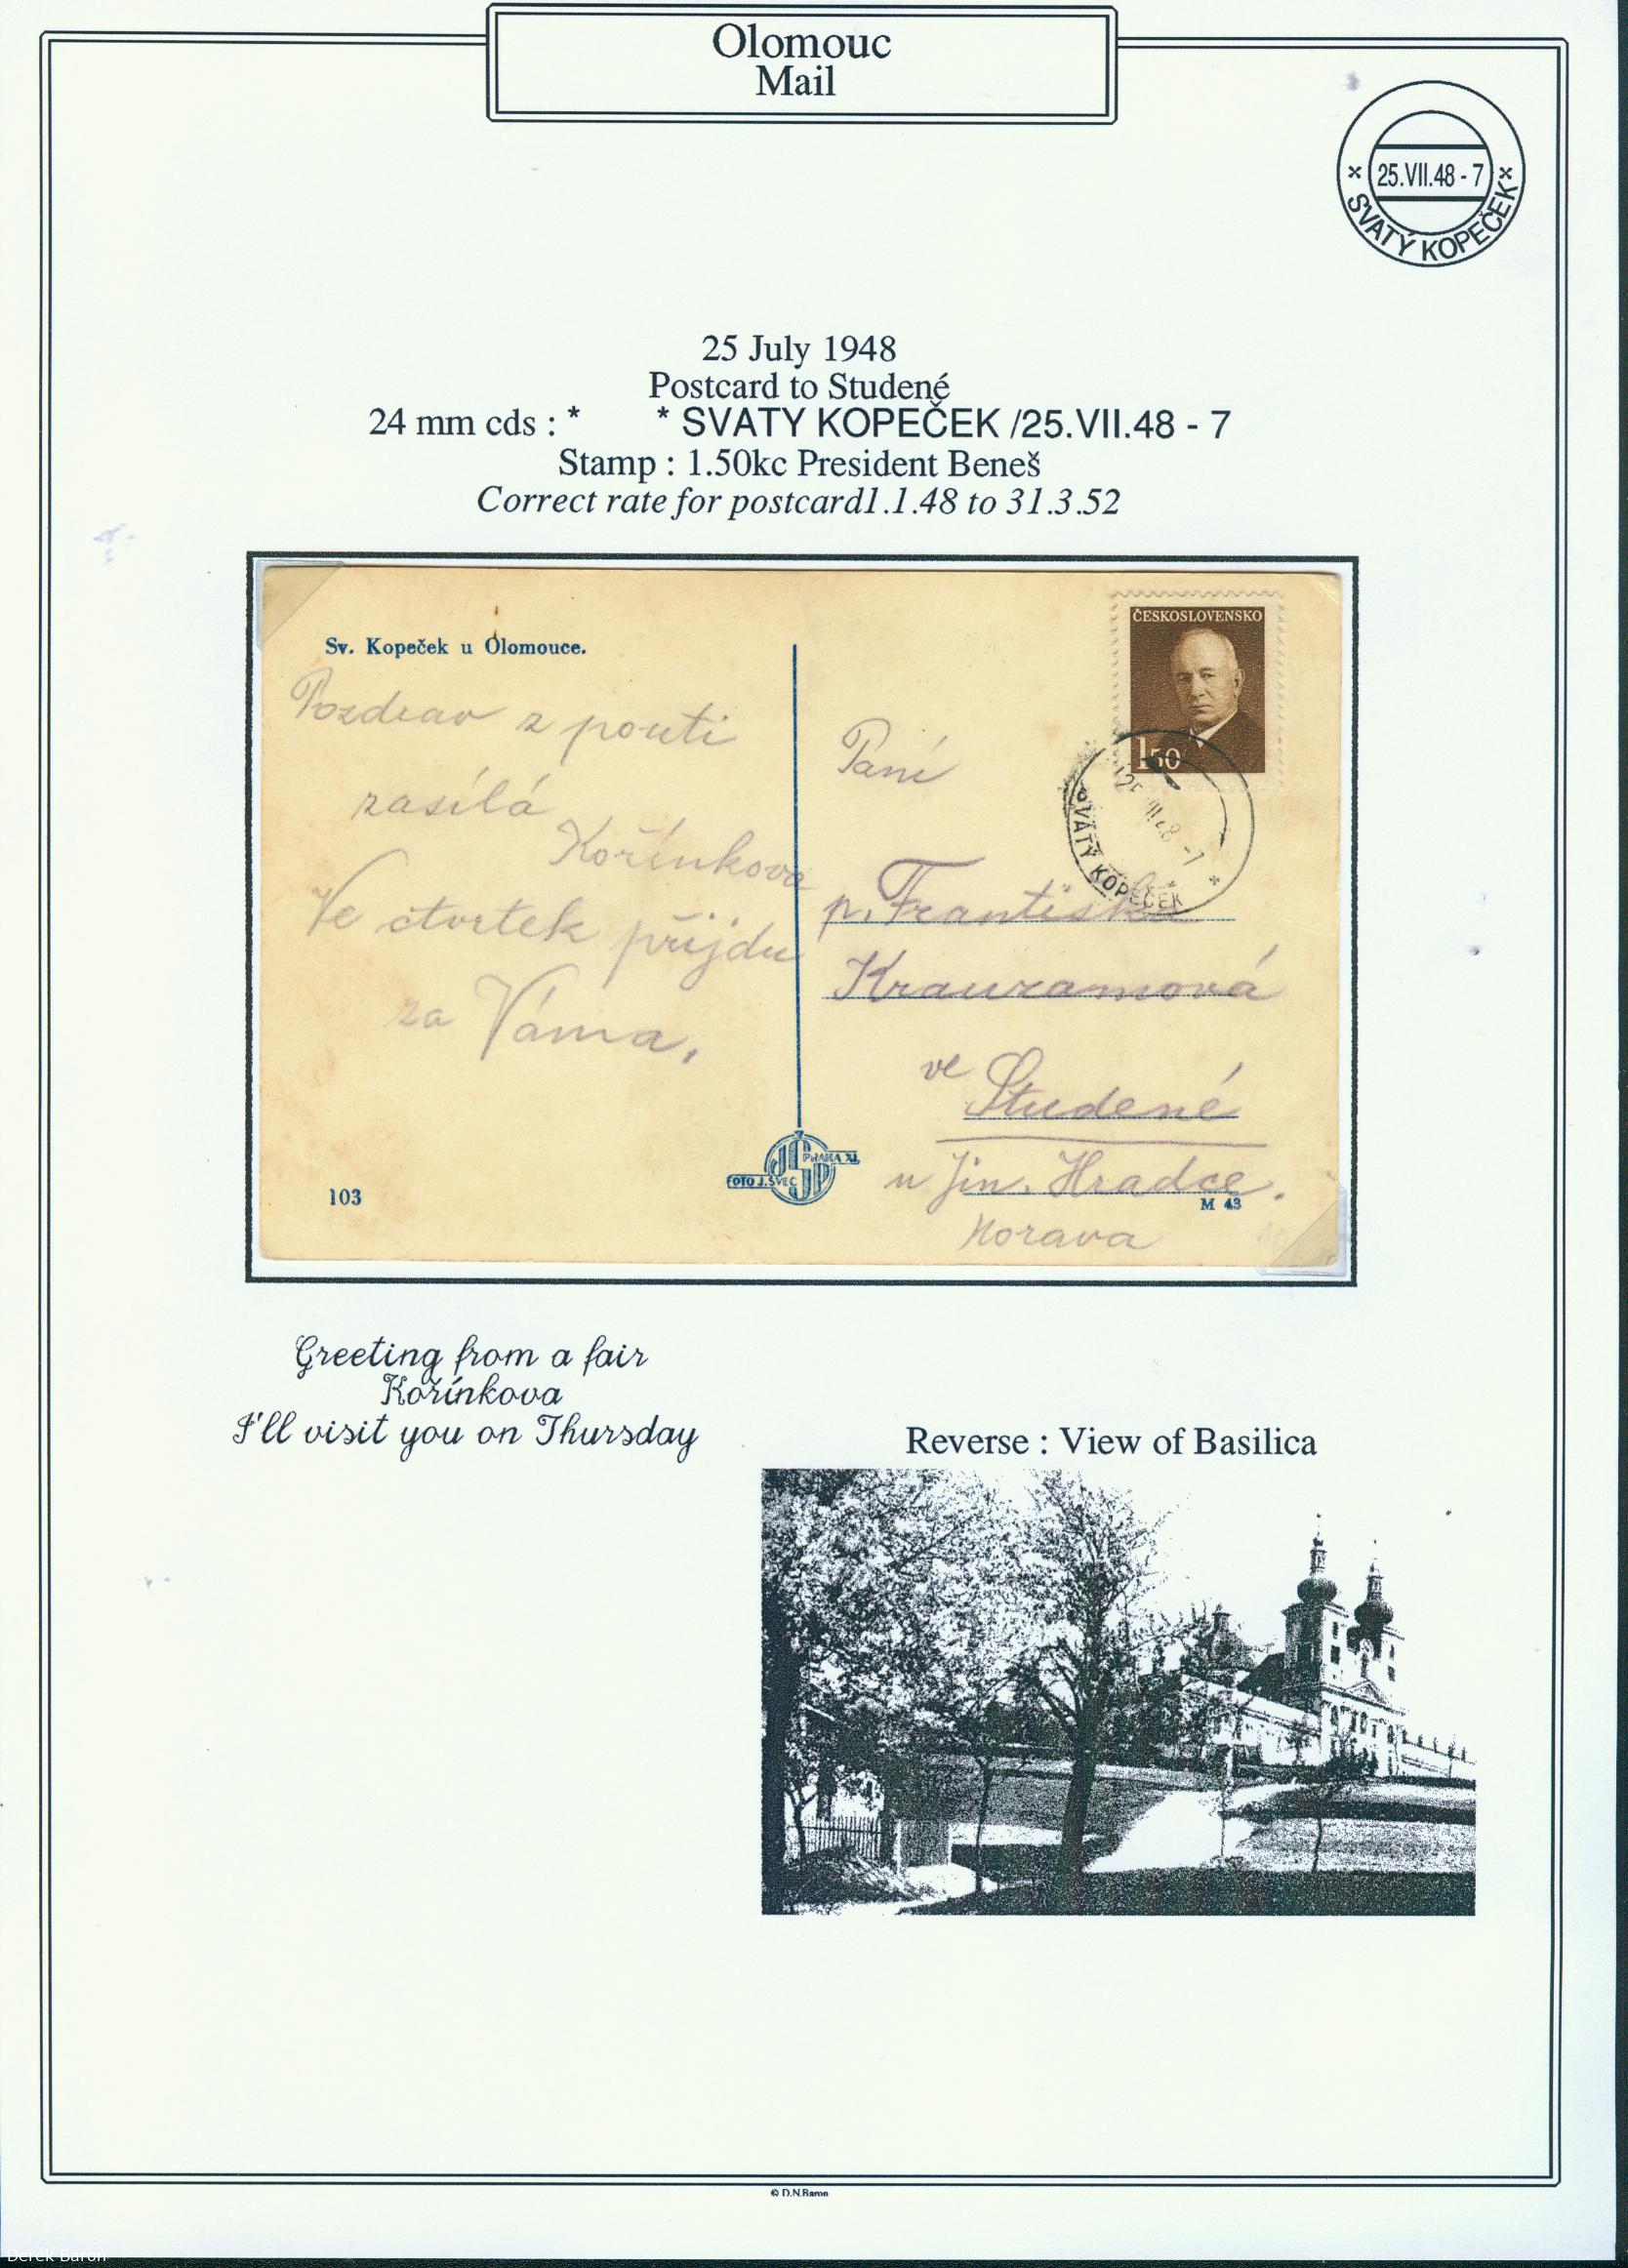 Olomouc
Mail
* 25.VII.48 - 7 *
SVATÝ KOPEČEK
25 July 1948
Postcard to Studené
24 mm cds : * * SVATY KOPEČEK /25.VII.48 - 7
Stamp : 1.50kc President Beneš
Correct rate for postcard1.1.48 to 31.3.52
ČESKOSLOVENSKO
1 50
SVATÝ KOPEČEK
Sv. Kopeček u Olomouce.
Pozdrav z pouti
zasílá
Kořínkova
Ve čtvrtek přijdu
za Váma.
Paní
p. Františka
Krauzamová
ve Studené
u Jin. Hradce.
Morava
FOTO J. ŠVEC JŠP PRAHA XI.
103
M 43
Greeting from a fair
Kořínkova
I'll visit you on Thursday
Reverse : View of Basilica
© D.N.Baron
Derek Baron